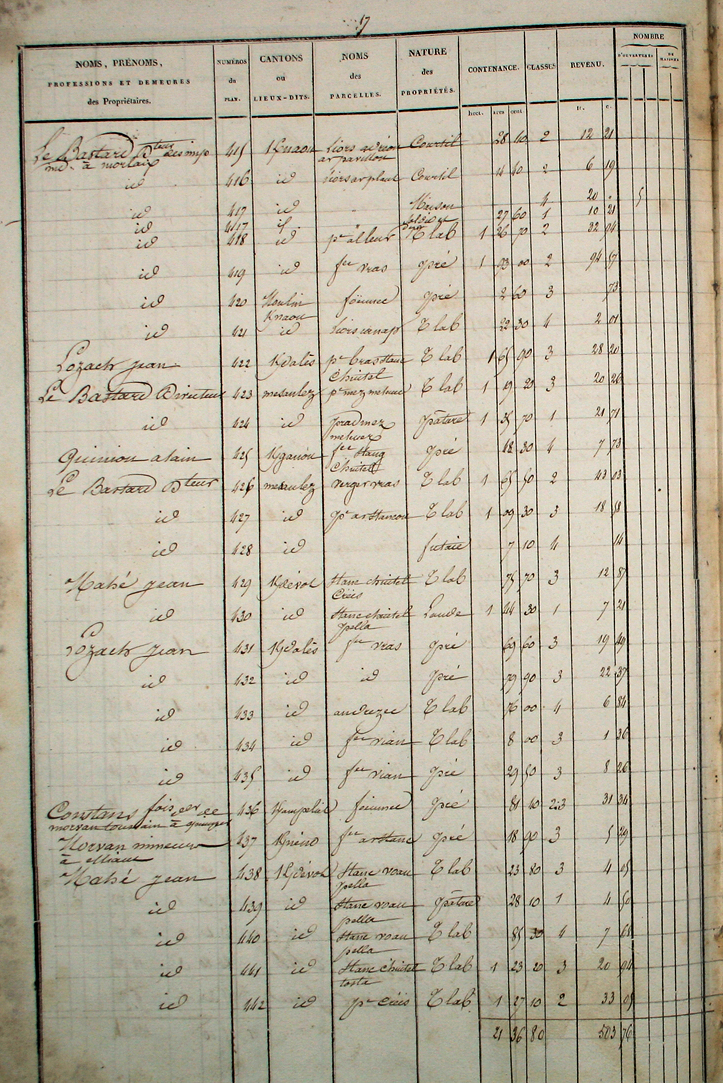 17
NOMS, PRÉNOMS, PROFESSIONS ET DEMEURES des Propriétaires. NUMÉROS du PLAN. CANTONS ou LIEUX-DITS. NOMS des PARCELLES. NATURE des PROPRIÉTÉS. CONTENANCE. CLASSES. REVENU. NOMBRE D'OUVERTURES DE MAISONS
hect. ares cent. fr. c.
Le Bastard Dteur des imp 415 Knaou liors Courtil 28 10 2 12 21
md à morlaix ar pavillon
id 416 id liors ar plant Courtil 14 40 2 6 19
id 417 id Maison 4 20 . 5
id 417 id 27 60 1 10 21
id 418 id pc alleur T lab 1 26 70 2 32 94
id 419 id fec vras pré 1 93 00 2 94 57
id 420 Moulin Knaou foënnec pré 2 60 3 73
id 421 id liors canap T lab 22 30 4 2 01
Lozach jean 422 Kdalès pc bras stanc T lab 1 65 90 3 28 20
Christel
Le Bastard Directeur 423 mesanlez pc mez melinec T lab 1 19 20 3 20 26
id 424 id prad mez pâture 1 35 70 1 21 71
melinez
Quiniou alain 425 Kganou fec stang pré 18 30 4 7 73
Christel
Le Bastard Dteur 426 mesanlez verger vras T lab 1 65 50 2 43 03
id 427 id pc ar stancou T lab 1 09 30 3 18 58
id 428 id futaie 7 10 4 14
Mahé jean 429 Kdévol stanc christel T lab 75 70 3 12 87
Créis
id 430 id stanc christel Lande 1 44 30 1 7 21
pella
Lozach jean 431 Kdalès fec vras pré 69 60 3 19 49
id 432 id id pré 79 90 3 22 37
id 433 id T lab 76 00 4 6 84
id 434 id fec vian T lab 8 00 3 1 36
id 435 id fec vian pré 29 50 3 8 26
Constans 436 foënnec pré 81 10 2.3 31 34
morvan toussain à
Morvan mineur 437 fec ar stanc pré 18 90 3 5 29
Mahé jean 438 Kdévol stanc voan T lab 23 80 3 4 05
pella
id 439 id stanc voan pâture 28 10 1 4 50
pella
id 440 id stanc voan T lab 85 30 4 7 68
pella
id 441 id stanc christel T lab 1 23 20 3 20 94
tosta
id 442 id pc créis T lab 1 27 10 2 33 05
21 36 80 503 76